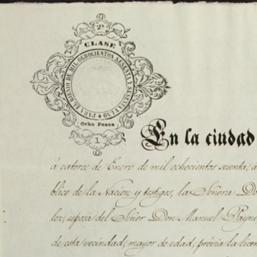 2ª
CLASE
PARA EL BIENIO DE MIL OCHOCIENTOS SESENTA Y SESENTA Y UNO
Ocho Pesos
1
En la ciudad
á catorce de Enero de mil ochocientos sesenta, a
blico de la Nacion y testigos, la Señora Do
los, esposa del Señor Don Manuel Payno
de esta vecindad, mayor de edad, prévia la licen